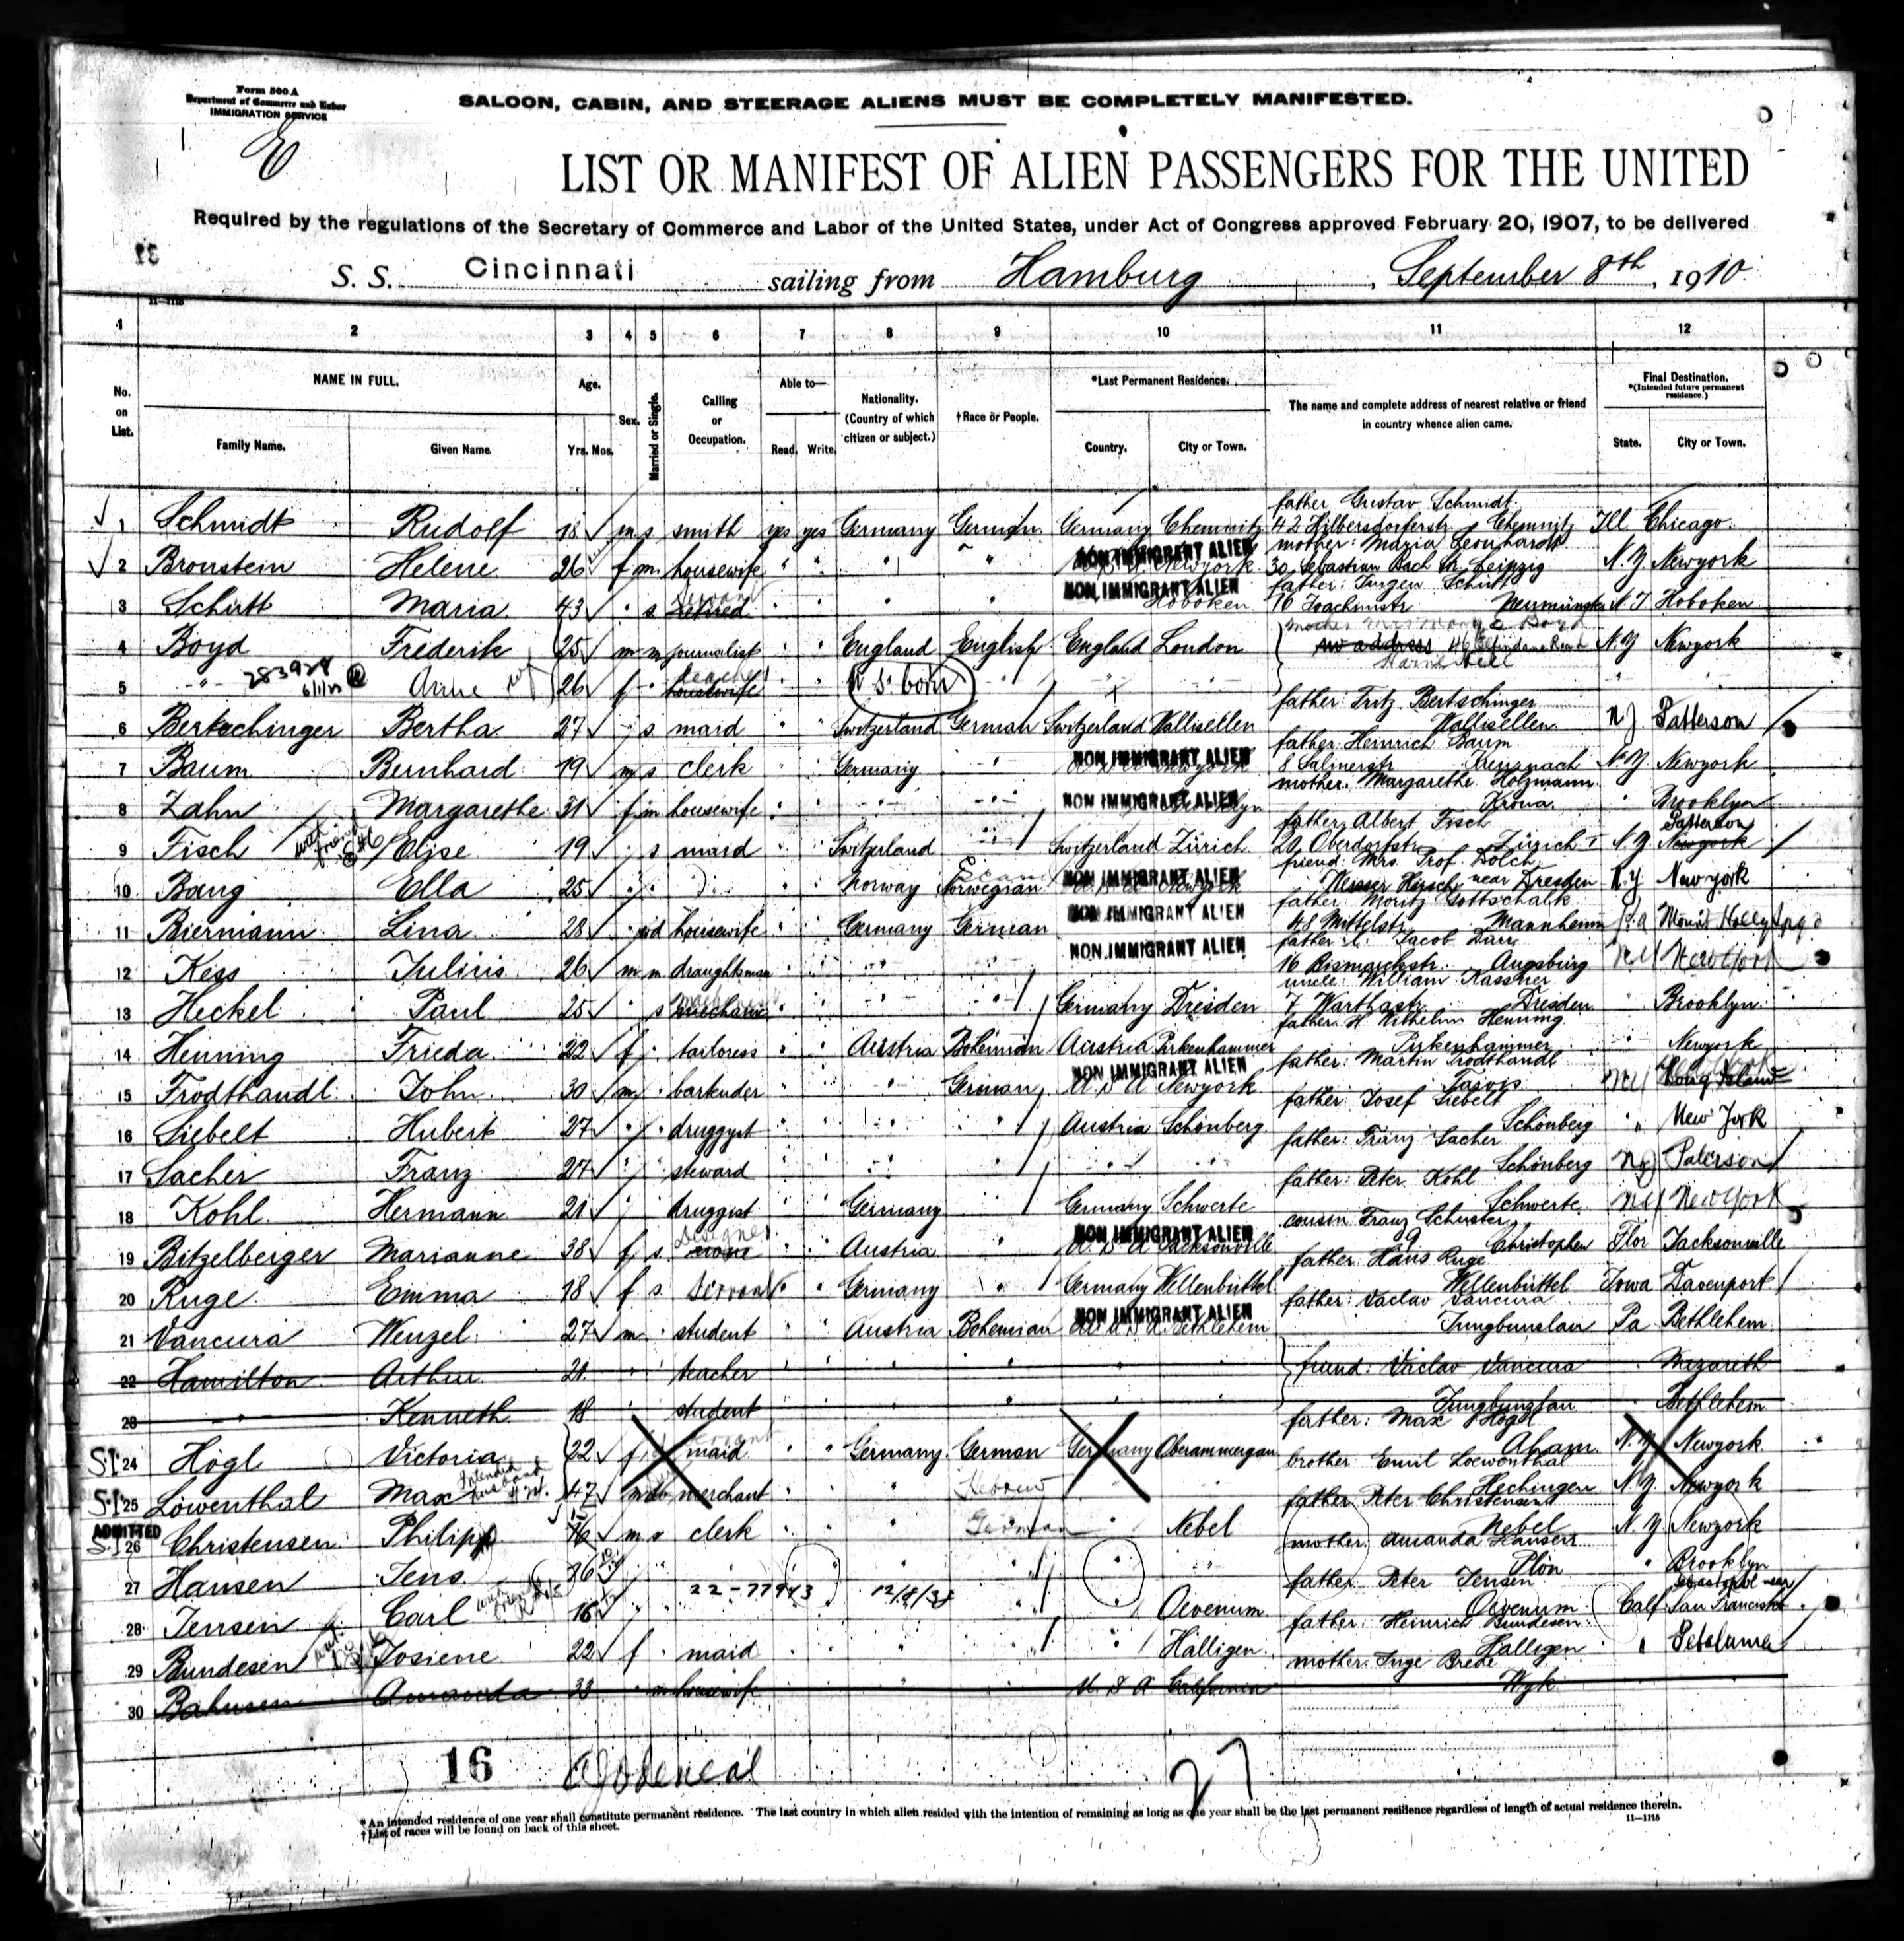 Form 500 A
Department of Commerce and Labor
IMMIGRATION SERVICE
SALOON, CABIN, AND STEERAGE ALIENS MUST BE COMPLETELY MANIFESTED.
LIST OR MANIFEST OF ALIEN PASSENGERS FOR THE UNITED
Required by the regulations of the Secretary of Commerce and Labor of the United States, under Act of Congress approved February 20, 1907, to be delivered
S. S. Cincinnati sailing from Hamburg, September 8th, 1910
1 2 3 4 5 6 7 8 9 10 11 12
No. on List. NAME IN FULL. Family Name. Given Name. Age. Yrs. Mos. Sex. Married or Single. Calling or Occupation. Able to— Read. Write. Nationality. (Country of which citizen or subject.) †Race or People. *Last Permanent Residence. Country. City or Town. The name and complete address of nearest relative or friend in country whence alien came. Final Destination. *(Intended future permanent residence.) State. City or Town.
father Gustav Schmidt
1 Schmidt Rudolf 18 m s smith yes yes Germany German Germany Chemnitz 42 Hilbersdorferstr Chemnitz Ill Chicago
mother: Maria Leonhardt
2 Bronstein Helene 26 f m housewife " " " " NON IMMIGRANT ALIEN Newyork 30 Sebastian Bach Str Leipzig N.Y Newyork
father: Jurgen Schütt
3 Schütt Maria 43 " s servant retired " " " " NON IMMIGRANT ALIEN Hoboken 16 Joachimstr Neumünster N.J Hoboken
4 Boyd Frederik 25 m m journalist " " England English England London no address N.Y Newyork
5 " 283928 Anne 26 f " teacher housewife " " U.S. born
father: Fritz Bertschinger
6 Bertschinger Bertha 27 " s maid " " Switzerland German Switzerland Wallisellen Wallisellen N J Patterson
father: Heinrich Baum
7 Baum Bernhard 19 m s clerk " " Germany " NON IMMIGRANT ALIEN U.S.A Newyork 8 Salinerstr Kreuznach N.Y Newyork
mother: Margarethe Holzmann
8 Zahn Margarethe 31 f m housewife " " " " NON IMMIGRANT ALIEN Krona " Brooklyn
father: Albert Fisch
9 Fisch Elise 19 " s maid " " Switzerland " Switzerland Zürich Oberdorfstr Zürich I N.Y Newyork Patterson
friend: Mrs. Prof. Dolch
10 Bang Ella 25 " " " " " Norway Norwegian Scan NON IMMIGRANT ALIEN Newyork Weisser Hirsch near Dresden N.Y New york
father: Moritz Gottschalk
11 Biermann Lina 28 " wd housewife " " Germany German NON IMMIGRANT ALIEN 48 Mittelstr Mannheim
12 Kess Julius 26 m m draughtsman " " " " NON IMMIGRANT ALIEN 16 Bismarckstr. Augsburg NY New York
uncle: William Kassner
13 Heckel Paul 25 " s mechanic " " " " Germany Dresden 7 Warthastr. Dresden " Brooklyn
father: H. Wilhelm Henning
14 Henning Frieda 22 f " tailoress " " Austria Bohemian Austria Pirkenhammer Pirkenhammer " Newyork
father: Martin Frodthandl
15 Frodthandl John 30 m " bartender " " " German NON IMMIGRANT ALIEN U.S.A Newyork Tarvis NY Long Island
father: Josef Siebelt
16 Siebelt Hubert 27 " " druggyst " " " " Austria Schönberg Schönberg " New York
father: Franz Sacher
17 Sacher Franz 27 " " steward " " " " " " Schönberg NJ Paterson
father: Peter Kohl
18 Kohl Hermann 21 " " druggist " " Germany " Germany Schwerte Schwerte NY New York
cousin: Franz Schuster
19 Bitzelberger Marianne 38 f s designer none " " Austria " NON IMMIGRANT ALIEN U.S.A Jacksonville Christophen Flor Jacksonville
father: Hans Ruge
20 Ruge Emma 18 f s servant " " Germany " Germany Wellenbüttel Wellenbüttel Iowa Davenport
father: Vaclav Vancura
21 Vancura Wenzel 27 m " student " " Austria Bohemian NON IMMIGRANT ALIEN U.S.A. Bethlehem Jungbunzlau Pa Bethlehem
22 Hamilton Arthur 21 " " teacher " " " " " " friend: Vaclav Vancura " Nazareth
23 " Kenneth 18 student " " Jungbunzlau Bethlehem
father: Max Högl
SI 24 Högl Victoria 22 f maid servant " " Germany German Germany Oberammergau Aham N.Y. Newyork
brother: Emil Loewenthal
SI 25 Löwenthal Max 47 m merchant " " " Hebrew " " Hechingen N.Y. Newyork
father: Peter Christensen
ADMITTED
SI 26 Christensen Philipp 16 m s clerk " " " German " Nebel Nebel N.Y Newyork
mother: Amanda Hansen
27 Hansen Jens 16 " " " " " " " " " Plön " Brooklyn
22-77943 12/8/38
father: Peter Jensen
28 Jensen Carl 16 " " " " " " Oevenum Oevenum Calf San Francisco
father: Heinrich Bundesen
29 Bundesen Josiene 22 f " maid " " " " " Halligen Halligen " Petaluma
mother: Inge Brede
30 Bahnsen Amanda 33 " m housewife " " U.S.A California Wyk
16 27
*An intended residence of one year shall constitute permanent residence. The last country in which alien resided with the intention of remaining as long as one year shall be the last permanent residence regardless of length of actual residence therein.
†List of races will be found on back of this sheet.
11—1115